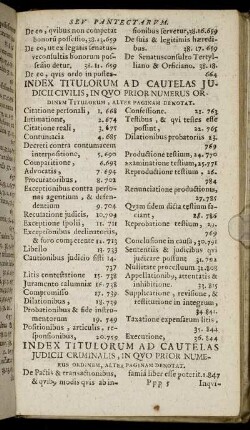 SEV PANTECTARVM.
De eo, quibus non competat
honorū possessio, 18.14.659
De eo, ut ex legatis senatus-
vconsultis honorum pos-
sessio detur, 31. 11. 659
De eo, quis ordo in posses-
sionibus servetur, 18.16.659
De suis & legitimis hæredi-
bus. 38. 17. 659
De Senatusconsulto Tertyl-
liano & Orficiano. 38. 18.
664
INDEX TITULORUM AD CAUTELAS JU-
DICII CIVILIS, IN QVO PRIOR NUMERUS OR-
DINEM TITULORUM, ALTER PAGINAM DENOTAT.
Citatione personali, 1. 668
Intimatione, 2. 674
Citatione reali, 3. 675
Contumacia, 4. 685
Decreti contra contumacem
interpositione, 5. 690
Competatione, 6. 693
Advocatis, 7. 694
Procuratoribus, 8. 702
Exceptionibus contra perso-
nas agentium, & defen-
dentium, 9. 706
Recusatione judicis, 10.709
Exceptione spolii, 11. 711
Exceptionibus declectoriis,
& foro competente 12. 713
Libello 13. 733
Cautionibus judicio sisti 14.
737
Litis contestatione 15. 738
Juramento calumniæ 16. 738
Compromisso 17. 739
Dilationibus, 18. 739
Probationibus & fide instru-
mentorum 19. 749
Positionibus, articulis, re-
sponsionibus, 20. 759
Confessione, 21. 763
Testibus, & qvi testes esse
possunt, 22. 765
Dilationibus probatoriis 23.
769
Productione testium, 24.770
examinatione testium, 25.777
Reprobatione testium, 26.
784
Renunciatione productioni,
27. 785
Qvam fidem dicta testium fa-
ciant, 28. 786
Reprobatione testium, 29.
789
Conclusione in causa, 30.791
Sententiis & judicibus qvi
judicare possunt 31. 704
Nullitate processuum 31. 808
Appellationib⁹, attentatis &
inhibitione. 33. 815
Supplicatione, revisione, &
restitutione in integrum,
34. 841
Taxatione expensarum litis,
35. 844
Executione, 36. 844
INDEX TITULORUM AD CAUTELAS
JUDICII CRIMINALIS, IN QVO PRIOR NUME-
RUS ORDINEM, ALTRA PAGINAM DENOTAT.
De Pactis & transactionibus,
& qvib⁹ modis qvis ab in-
famia liber esse poterit. 1.847
Ppp 5 Inqvi-